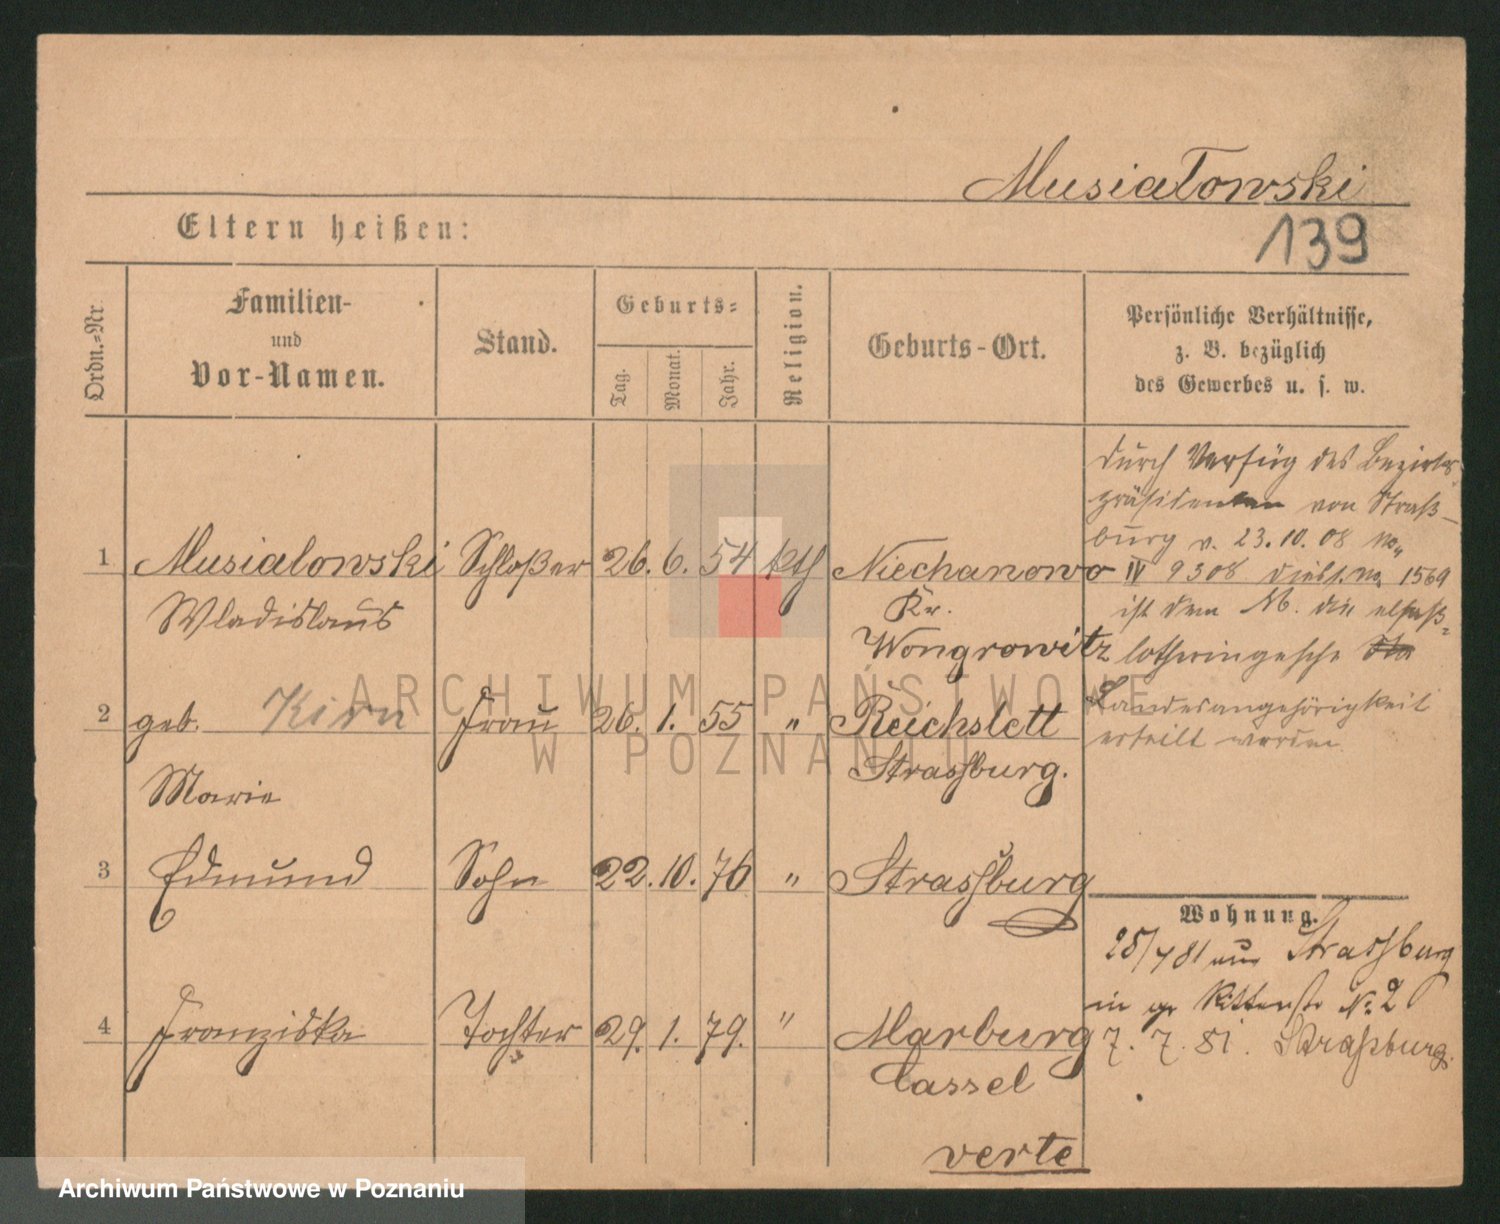 Musiałowski
Eltern heißen:
139
Ordn.-Nr.
Familien-
und
Vor-Namen.
Stand.
Geburts=
Tag.
Monat.
Jahr.
Religion.
Geburts-Ort.
Persönliche Verhältnisse,
z. B. bezüglich
des Gewerbes u. s. w.
durch Verfüg des Bezirks
präsidenten von Straß-
burg v. 23.10.08
1 Musialowski Schloßer 26. 6. 54 kth Niechanowo
IV 9308 1569
Wladislaus
Kr.
ist dem M. die elsaß-
Wongrowitz
lothringische
2 geb. Kirn Frau 26. 1. 55 " Reichstett
Landesangehörigkeit
Strassburg.
erteilt worden
Marie
3 Edmund Sohn 22. 10. 76 " Strassburg
Wohnung.
25/4 81 Strassburg
in gr No 2
4 Franziska Tochter 29. 1. 79. " Marburg
7. 7. 81. Straßburg.
Cassel
verte
ARCHIWUM PAŃSTWOWE
W POZNANIU
Archiwum Państwowe w Poznaniu